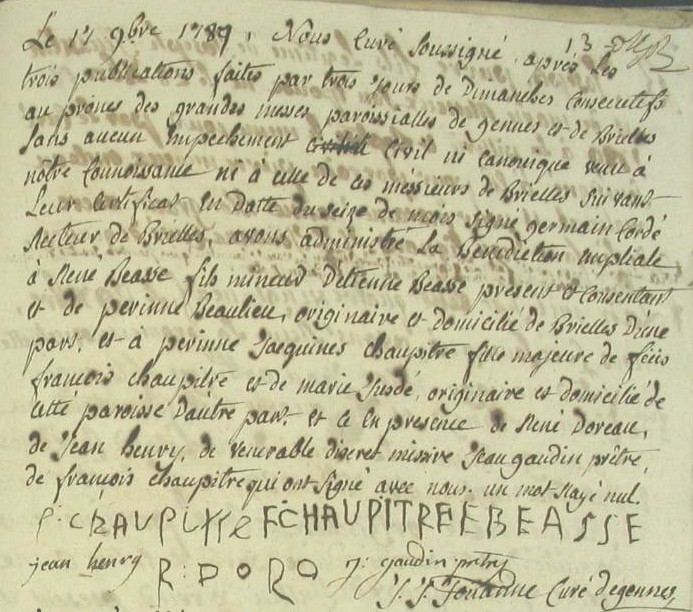 Le 17 9bre 1789, Nous Curé Soussigné, après les
trois publications faites par trois jours de Dimanches Consecutifs
au prônes des grandes messes paroissialles de gennes et de Brielles
sans aucun Empechement Civil ni Canonique venu à
nôtre Connoissance ni à celle de ces méssieurs de Brielles suivant
Leur Certificat En Datte du seize de mois signé germain Cordé
Recteur de Brielles, avons administré la Benediction nuptiale
à René Beasse fils mineur D'etienne Beasse present et Consentant
et de perinne Beaulieu, originaire et domicilié de Brielles D'une
part, et à perinne jacquines chaupitre fille majeure de feüs
françois chaupitre et de marie originaire et domicilié de
cette paroisse D'autre part. et ce En presence de René Doreau,
de Jean henry, de venerable discret missire jean gaudin prêtre,
de françois chaupitre qui ont signé avec nous. un mot rayé nul.
P. CHAUPITRE F. CHAUPITRE E BEASSE
jean henry R: DORO J: gaudin prêtre
Curé de gennes